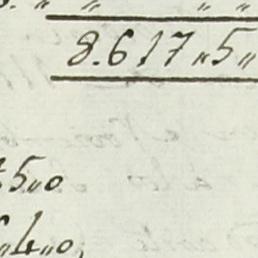 „ „ „ „
8.617„5„
5„0
„4„0,